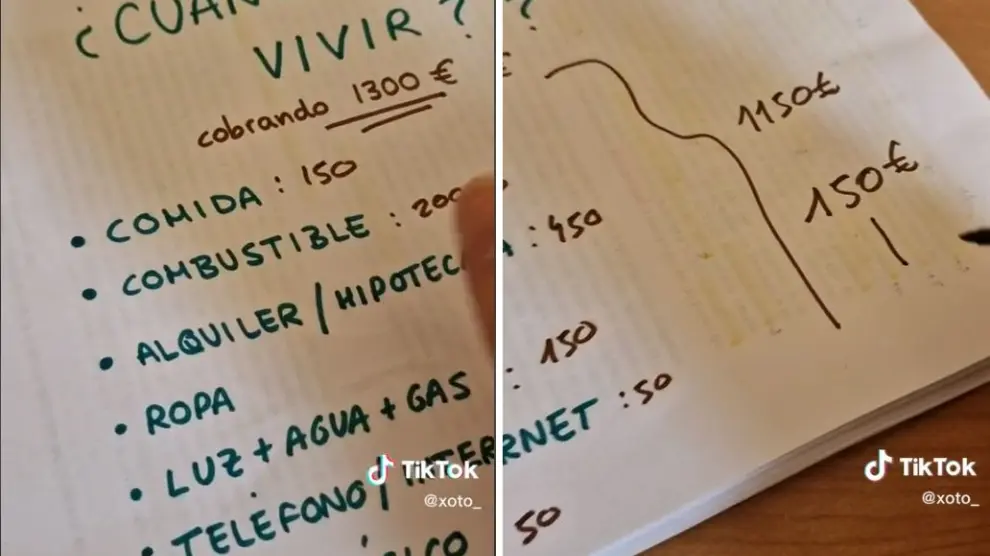 ¿CUÁN
VIVIR?
cobrando 1300 €
• COMIDA : 150
• COMBUSTIBLE : 200
• ALQUILER / HIPOTEC
• ROPA
• LUZ + AGUA + GAS
• TELÉFONO / INTER
TikTok
@xoto_
?
€
1150€
150€
A : 450
: 150
RNET : 50
50
TikTok
@xoto_